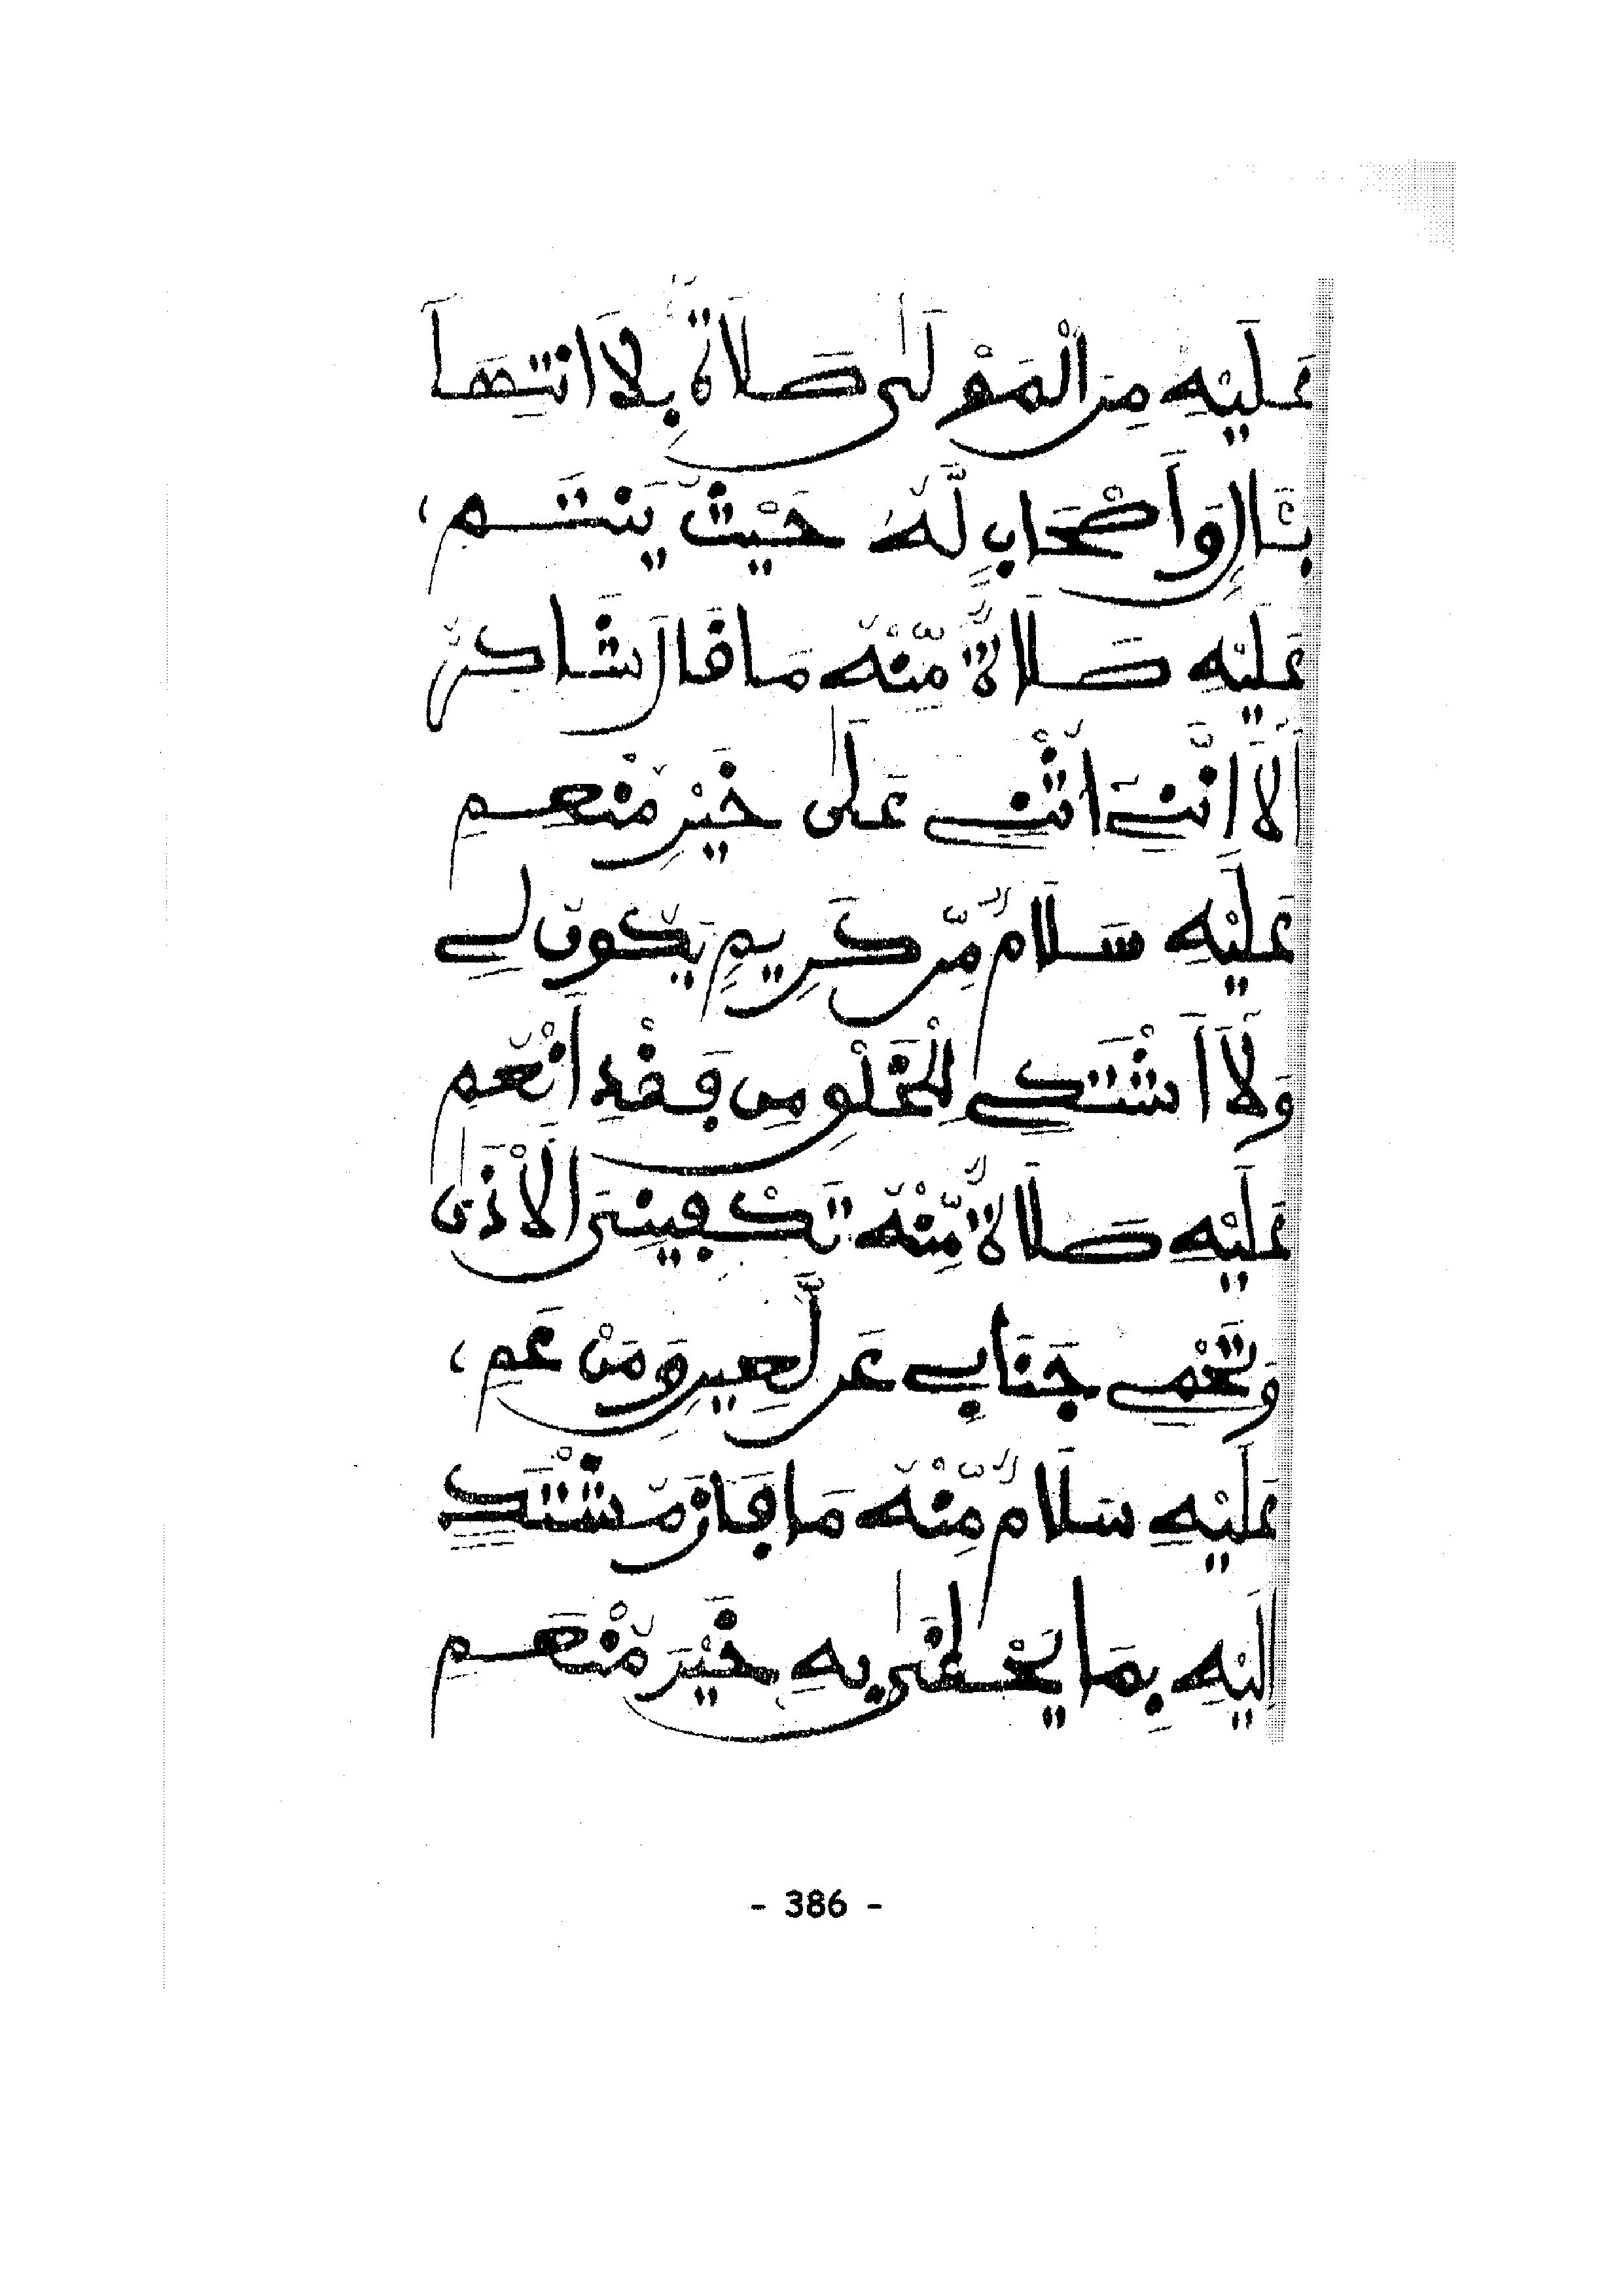 عَلَيْهِ مِنَ الْمَوْلَى صَلَاةٌ بِلَا انْتِهَا
بِآلٍ وَأَصْحَابٍ لَّهُ حَيْثُ يَنْتَمِ
عَلَيْهِ صَلَاةٌ مِّنْهُ مَا قَالَ شَاكِرٌ
أَلَا إِنَّنِي أُثْنِي عَلَى خَيْرِ مُنْعِمِ
عَلَيْهِ سَلَامٌ مِّن كَرِيمٍ يَكُونُ لِي
وَلَا أَشْتَكِي لِلْخَلْقِ مِن فَقْدِ أَنْعُمِ
عَلَيْهِ صَلَاةٌ مِّنْهُ تَكْفِينِيَ الْأَذَى
وَتَحْمِي جَنَابِي عَن لَّعِينٍ وَمَنْ عَمِ
عَلَيْهِ سَلَامٌ مِّنْهُ مَا فَازَ مُشْتَكٍ
إِلَيْهِ بِمَا يَحْظَى بِهِ خَيْرُ مُنْعَمِ
- 386 -